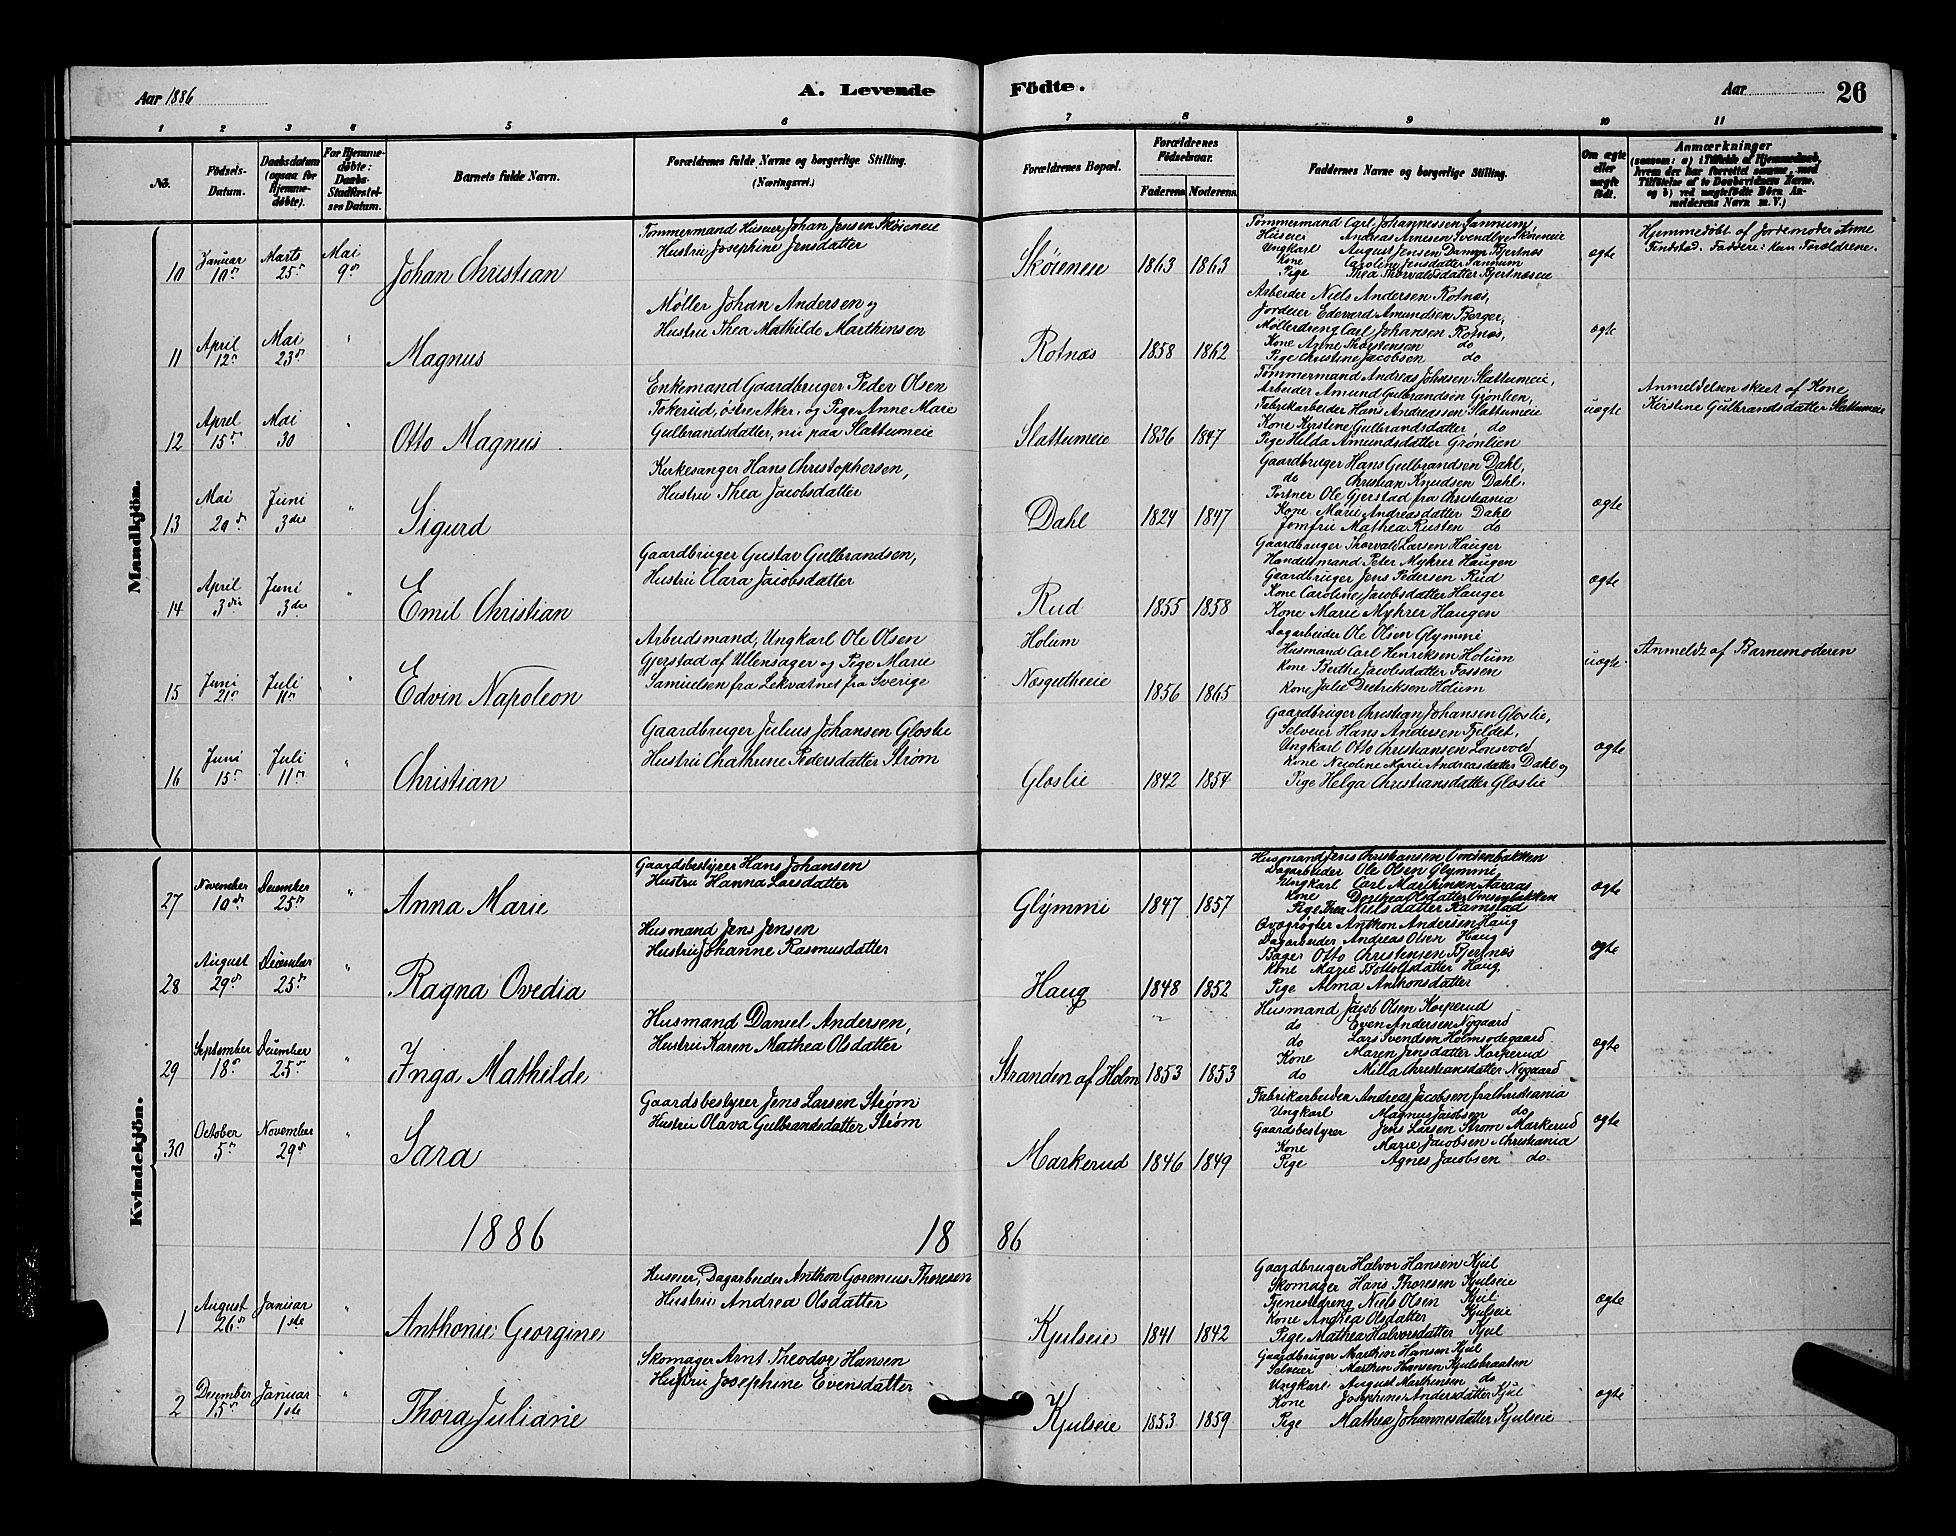 Aar 1886
A. Levende
Födte.
Aar
26
1 2 3 4 5 6 7 8 9 10 11
No.
Födsels-
Datum.
Daabsdatum
(ogsaa for
Hjemme-
døbte).
For Hjemme-
döbte:
Daabs-
Stadfæstel-
ses Datum.
Barnets fulde Navn.
Forældrenes fulde Navne og borgerlige Stilling.
(Næringsvei.)
Forældrenes Bopæl.
Forældrenes
Födselsaar.
Faderens Moderens
Faddernes Navne og borgerlige Stilling.
Om ægte
eller
uægte
födt.
Anmærkninger
Mandkjön.
10
Januar
10de
Marts
25de
Mai
9de
Johan Christian
Tømmermand Huseier Johan Jensen Skøieneie
Hustru Josephine Jensdatter
Skøieneie
1863 1863
Tømmermand Carl Johannessen Tannum
Huseier Andreas Arnesen Svendby Skøieneie
Ungkarl August Jensen Damyr Bjertnæs
Kone Caroline Jensdatter Tannum
Pige Thea Thorvaldsdatter Bjertnæseie
ægte
Hjemmedøbt af Jordemoder Anne
Tindstad. Faddere: kun Forældrene.
11
April
12te
Mai
23de
"
Magnus
Møller Johan Andersen og
Hustru Thea Mathilde Marthinsen
Rotnæs
1858 1862
Arbeider Niels Andersen Rotnæs,
Jordeier Edevard Amundsen Berger,
Møllerdreng Carl Johansen Rotnæs,
Kone Anne Thorstensen do
Pige Christine Jacobsen do
ægte
12
April
15de
Mai
30
"
Otto Magnus
Enkemand Gaardbruger Peder Olsen
Tokerud, østre Aker, og Pige Anne Marie
Gulbrandsdatter, nu paa Slattumeie
Slattumeie
1836 1847
Tømmermand Andreas Johnsen Slattumeie,
Arbeider Amund Gulbrandsen Grönlien,
Fabrikarbeider Hans Andreassen Slattumeie
Kone Kirstine Gulbrandsdatter do
Pige Helda Amundsdatter Grønlien
uægte
Anmeldelsen skeet af Kone
Kirstine Gulbrandsdatter Slattumeie
13
Mai
20de
Juni
3die
"
Sigurd
Kirkesanger Hans Christophersen,
Hustru Thea Jacobsdatter
Dahl
1824 1847
Gaardbruger Hans Gulbrandsen Dahl,
do Christian Knudsen Dahl,
Portner Ole Gjerstad fra Christiania
Kone Marie Andreasdatter Dahl
Jomfru Mathea Rusten do
ægte
14
April
3die
Juni
3die
"
Emil Christian
Gaardbruger Gustav Gulbrandsen,
Hustru Clara Jacobsdatter
Rud
1855 1858
Gaardbruger Thorvald Larsen Hauger
Handelsmand Peter Myhrer Haugen
Gaardbruger Jens Pedersen Rud
Kone Caroline Jacobsdatter Hauger
Kone Marie Myhrer Haugen
ægte
15
Juni
21de
Juli
11te
"
Edvin Napoleon
Arbeidsmand, Ungkarl Ole Olsen
Gjerstad af Ullensager og Pige Marie
Samuelsen fra Lekvatnet fra Sverige
Holum
1856 1865
Dagarbeider Ole Olsen Glymmi
Husmand Carl Henriksen Holum
Kone Berthe Jacobsdatter Fossen
Kone Julie Diedriksen Holum
uægte
Anmeldt af Barnemoderen
16
Juni
15de
Juli
11te
"
Christian
Gaardbruger Julius Johansen Gloslie
Hustru Chathrine Pedersdatter Strøm
Gloslie
1842 1854
Gaardbruger Christian Johansen Gloslie,
Selveier Hans Andersen Fjeldet,
Ungkarl Otto Christiansen Lonsvold
Kone Nicoline Marie Andreasdatter Dahl og
Pige Helga Christiansdatter Gloslie
ægte
Kvindekjön.
27
November
10de
December
25de
"
Anna Marie
Gaardsbestyrer Hans Johansen
Hustru Hanna Larsdatter
Glymmi
1847 1857
Husmand Jens Christiansen Omsenbakken
Dagarbeider Ole Olsen Glymmi
Ungkarl Carl Marthinsen Aaraas
Kone Dorthea Olsdatter Omsenbakken
Pige Thea Nielsdatter Ramstad
ægte
28
August
29de
December
25de
"
Ragna Ovedia
Husmand Jens Jensen
Hustru Johanne Rasmusdatter
Haug
1848 1852
Qvægrøgter Anthon Andersen Haug
Dagarbeider Andreas Olsen Haug
Bager Otto Christensen Bjertnæs
Kone Marie Bottolfsdatter Haug
Pige Alma Anthonsdatter
ægte
29
September
18de
December
25de
"
Inga Mathilde
Husmand Daniel Andersen,
Hustru Karen Mathea Olsdatter
Stranden af Holm
1853 1853
Husmand Jacob Olsen Korkerud
do Even Andersen Nygaard
do Lars Svendsen Holmsødegaard
Kone Maren Jensdatter Korkerud
do Milla Christiansdatter Nygaard
ægte
30
October
5te
November
29de
"
Sara
Gaardsbestyrer Jens Larsen Strøm
Hustru Olava Gulbrandsdatter Strøm
Markerud
1846 1849
Fabrikarbeider Andreas Jacobsen fra Christiania
Ungkarl Magnus Jacobsen do
Gaardsbestyrer Jens Larsen Strøm Markerud
Kone Marie Jacobsen Christiania
Pige Agnes Jacobsen do
ægte
1886
18 86
1
August
26de
Januar
1ste
"
Anthonie Georgine
Huseier, Dagarbeider Anthon Gorenius Thoresen
Hustru Andrea Olsdatter
Kjulseie
1841 1842
Gaardbruger Halvor Hansen Kjul
Skomager Hans Thoresen Kjulseie
Tjenestedreng Niels Olsen Kjul
Kone Andrea Olsdatter Kjulseie
Pige Mathea Halvorsdatter Kjul
ægte
2
December
15de
Januar
1ste
"
Thora Juliane
Skomager Arnt Theodor Hansen
Hustru Josephine Evensdatter
Kjulseie
1853 1859
Gaardbruger Marthin Hansen Kjul
Selveier Marthin Hansen Kjulsbraaten
Ungkarl August Marthinsen do
Kone Josephine Andersdatter Kjul
Pige Mathea Johannesdatter Kjulseie
ægte